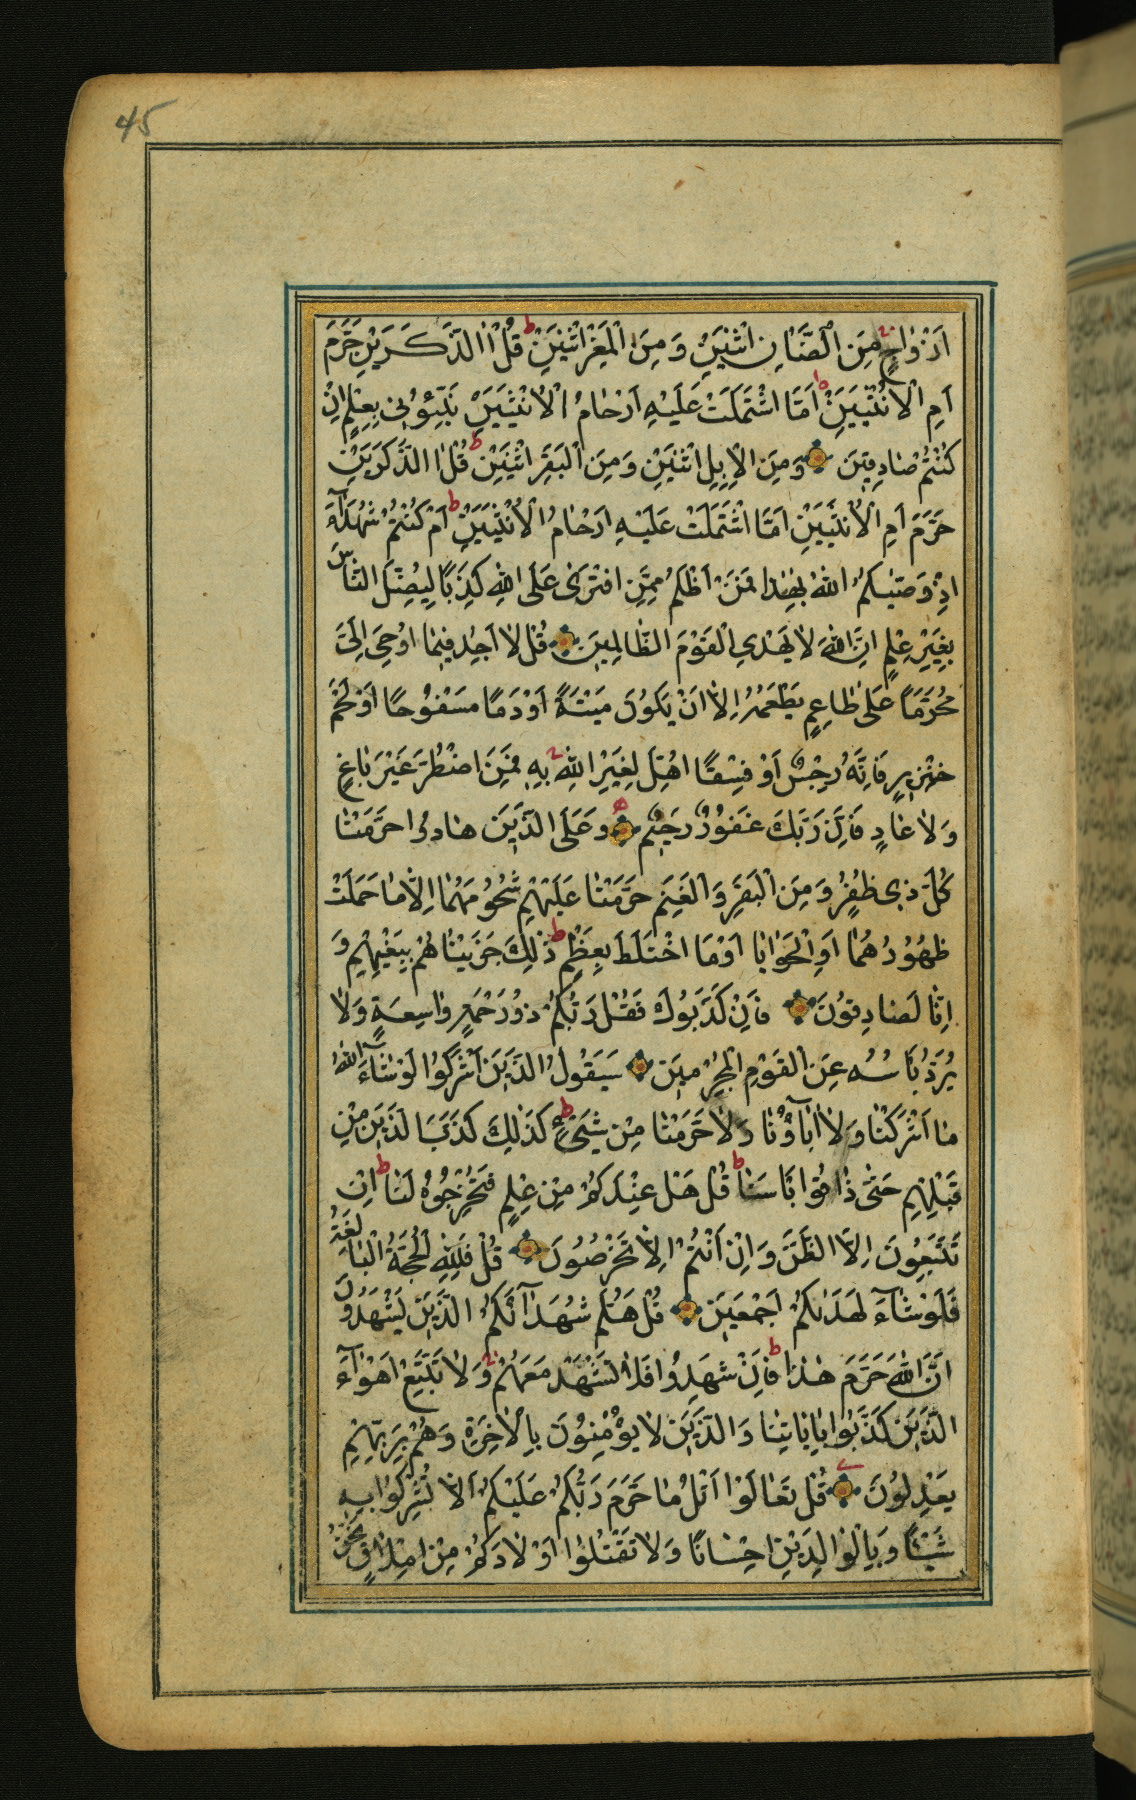 45
اَزْوٰاجٍ مِنَ الضَّاْنِ اثْنَيْنِ وَ مِنَ الْمَعْزِ اثْنَيْنِ قُلْ اٰلذَّكَرَيْنِ حَرَّمَ
اَمِ الْاُنْثَيَيْنِ اَمَّا اشْتَمَلَتْ عَلَيْهِ اَرْحٰامُ الْاُنْثَيَيْنِ نَبِّئُونِى بِعِلْمٍ اِنْ
كُنْتُمْ صٰادِقِينَ وَمِنَ الْاِبِلِ اثْنَيْنِ وَمِنَ الْبَقَرِ اثْنَيْنِ قُلْ اٰلذَّكَرَيْنِ
حَرَّمَ اَمِ الْاُنْثَيَيْنِ اَمَّا اشْتَمَلَتْ عَلَيْهِ اَرْحٰامُ الْاُنْثَيَيْنِ اَمْ كُنْتُمْ شُهَدٰآءَ
اِذْ وَصّٰيكُمُ اللّٰهُ بِهٰذٰا فَمَنْ اَظْلَمُ مِمَّنِ افْتَرٰى عَلَى اللّٰهِ كَذِبًا لِيُضِلَّ النّٰاسَ
بِغَيْرِ عِلْمٍ اِنَّ اللّٰهَ لٰا يَهْدِي الْقَوْمَ الظّٰالِمِينَ قُلْ لٰا اَجِدُ فِيمٰا اُوحِىَ اِلَىَّ
مُحَرَّمًا عَلٰى طٰاعِمٍ يَطْعَمُهُ اِلّٰا اَنْ يَكُونَ مَيْتَةً اَوْ دَمًا مَسْفُوحًا اَوْ لَحْمَ
خِنْزِيرٍ فَاِنَّهُ رِجْسٌ اَوْ فِسْقًا اُهِلَّ لِغَيْرِ اللّٰهِ بِهِ فَمَنِ اضْطُرَّ غَيْرَ بٰاغٍ
وَ لٰا عٰادٍ فَاِنَّ رَبَّكَ غَفُورٌ رَحِيمٌ وَ عَلَى الَّذِينَ هٰادُوا حَرَّمْنٰا
كُلَّ ذِى ظُفُرٍ وَ مِنَ الْبَقَرِ وَ الْغَنَمِ حَرَّمْنٰا عَلَيْهِمْ شُحُومَهُمٰا اِلّٰا مٰا حَمَلَتْ
ظُهُورُهُمٰا اَوِ الْحَوٰايٰا اَوْ مٰا اخْتَلَطَ بِعَظْمٍ ذٰلِكَ جَزَيْنٰاهُمْ بِبَغْيِهِمْ وَ
اِنّٰا لَصٰادِقُونَ فَاِنْ كَذَّبُوكَ فَقُلْ رَبُّكُمْ ذُو رَحْمَةٍ وٰاسِعَةٍ وَ لٰا
يُرَدُّ بَاْسُهُ عَنِ الْقَوْمِ الْمُجْرِمِينَ سَيَقُولُ الَّذِينَ اَشْرَكُوا لَوْ شٰآءَ اللّٰهُ
مٰا اَشْرَكْنٰا وَ لٰا اٰبٰآؤُنٰا وَ لٰا حَرَّمْنٰا مِنْ شَىْءٍ كَذٰلِكَ كَذَّبَ الَّذِينَ مِنْ
قَبْلِهِمْ حَتّٰى ذٰاقُوا بَاْسَنٰا قُلْ هَلْ عِنْدَكُمْ مِنْ عِلْمٍ فَتُخْرِجُوهُ لَنٰا اِنْ
تَتَّبِعُونَ اِلَّا الظَّنَّ وَ اِنْ اَنْتُمْ اِلّٰا تَخْرُصُونَ قُلْ فَلِلّٰهِ الْحُجَّةُ الْبٰالِغَةُ
فَلَوْ شٰآءَ لَهَدٰيكُمْ اَجْمَعِينَ قُلْ هَلُمَّ شُهَدٰآءَكُمُ الَّذِينَ يَشْهَدُونَ
اَنَّ اللّٰهَ حَرَّمَ هٰذٰا فَاِنْ شَهِدُوا فَلٰا تَشْهَدْ مَعَهُمْ وَ لٰا تَتَّبِعْ اَهْوٰآءَ
الَّذِينَ كَذَّبُوا بِاٰيٰاتِنٰا وَ الَّذِينَ لٰا يُؤْمِنُونَ بِالْاٰخِرَةِ وَ هُمْ بِرَبِّهِمْ
يَعْدِلُونَ قُلْ تَعٰالَوْا اَتْلُ مٰا حَرَّمَ رَبُّكُمْ عَلَيْكُمْ اَلّٰا تُشْرِكُوا بِهِ
شَيْئًا وَ بِالْوٰالِدَيْنِ اِحْسٰانًا وَ لٰا تَقْتُلُوا اَوْلٰادَكُمْ مِنْ اِمْلٰاقٍ نَحْنُ